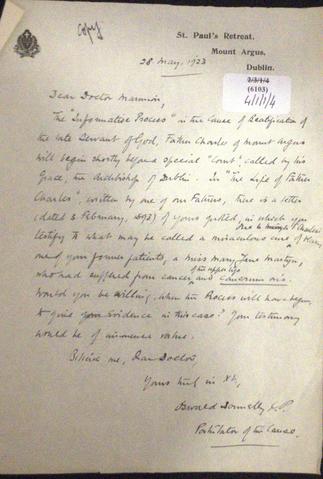 Copy
St. Paul's Retreat.
Mount Argus,
Dublin.
28 May, 1923
2/3/1/4
(6103)
4/1/1/4
Dear Doctor
The "Informative Process" in the Cause of Beatification of
the late Servant of God, Father Charles of Mount Argus
will begin shortly before a special "Court", called by his
Grace, the Archbishop of Dublin. In "The Life of Father
Charles", written by one of our Fathers, there is a letter
(dated 3 February, 1893) of yours quoted, in which you
testify to what may be called a miraculous cure, of
one of your former patients, a Miss Mary Jane Martyn,
who had suffered from cancer, and
Would you be willing, when the Process will have begun,
to give your Evidence in this case? Your testimony
would be of immense value.
Believe me, Dear Doctor,
Yours truly in Xt,
Oswald Donnelly C.P.
Postulator of the Cause.